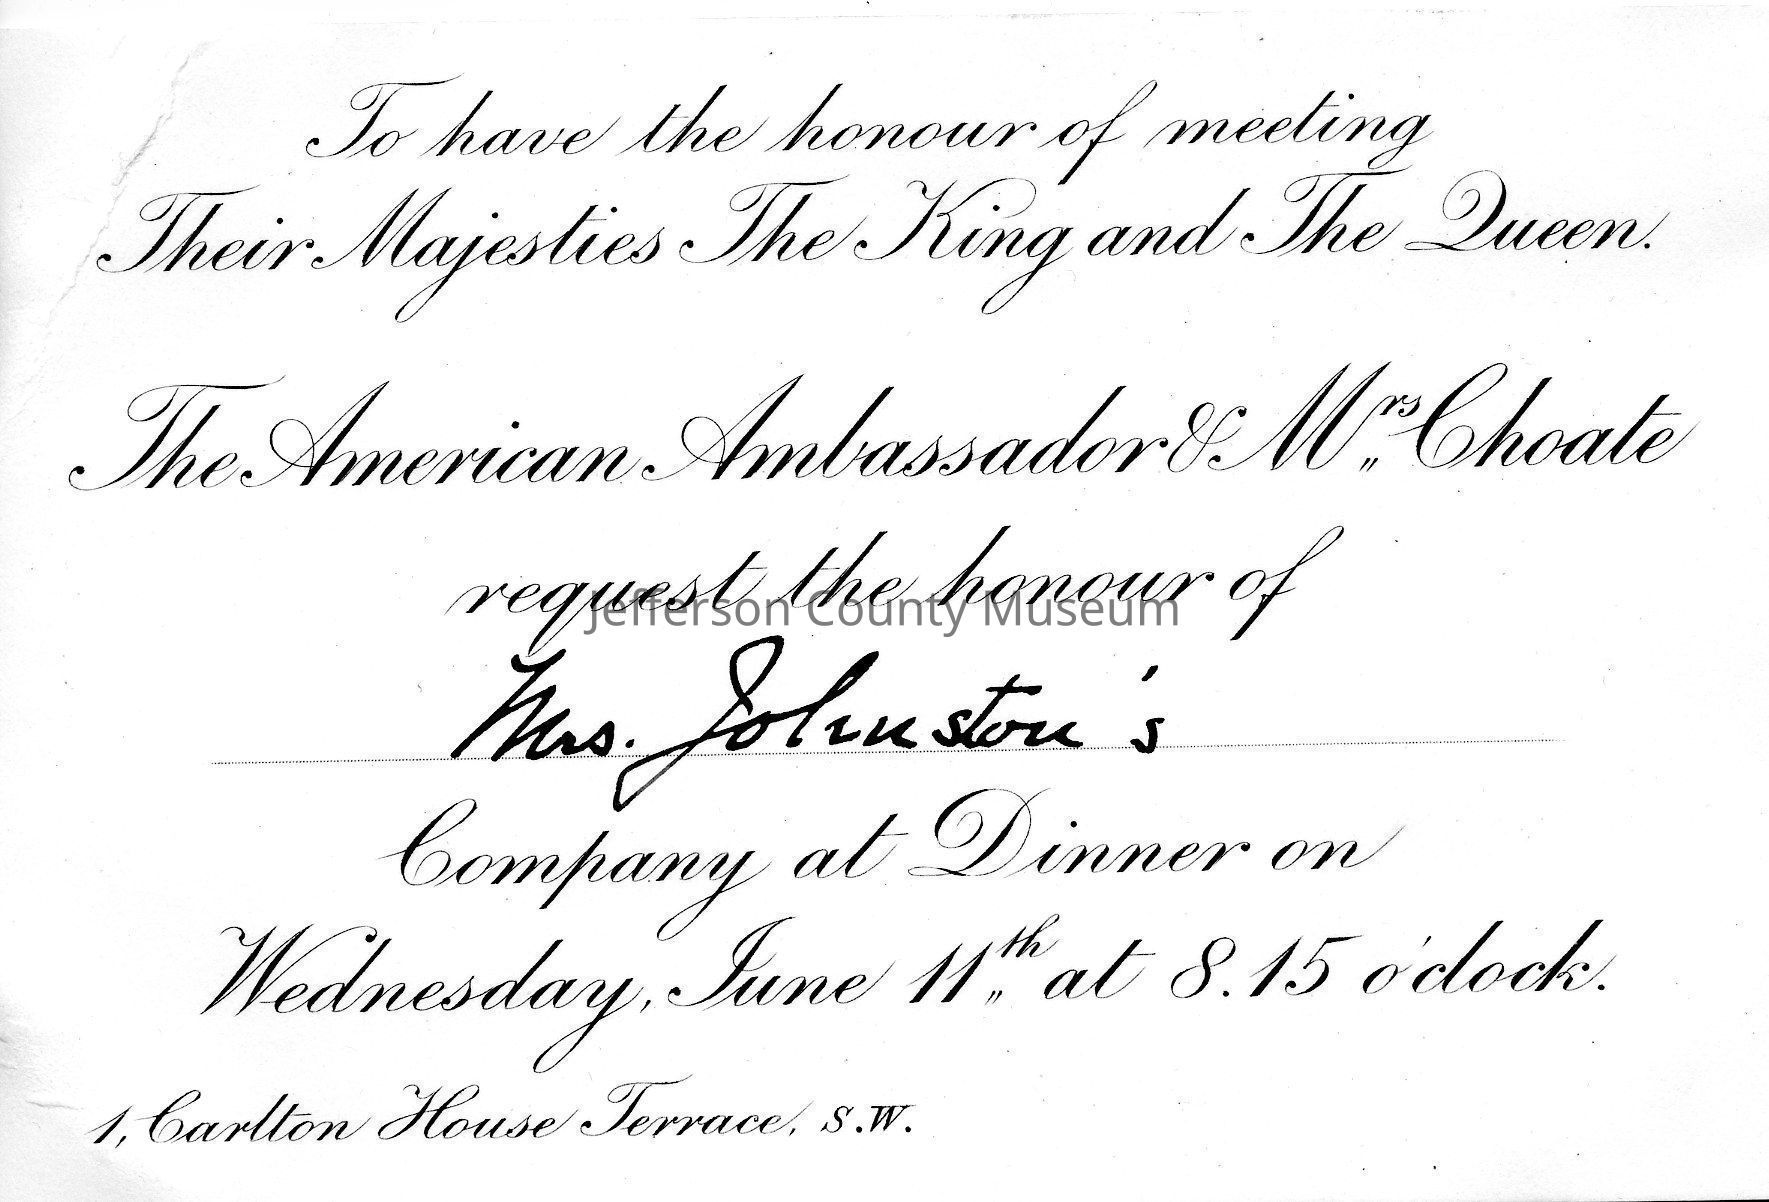 To have the honour of meeting
Their Majesties The King and The Queen.
The American Ambassador & Mrs Choate
request the honour of
Jefferson County Museum
Mrs. Johnston's
Company at Dinner on
Wednesday, June 11th at 8.15 o'clock.
1, Carlton House Terrace, S.W.